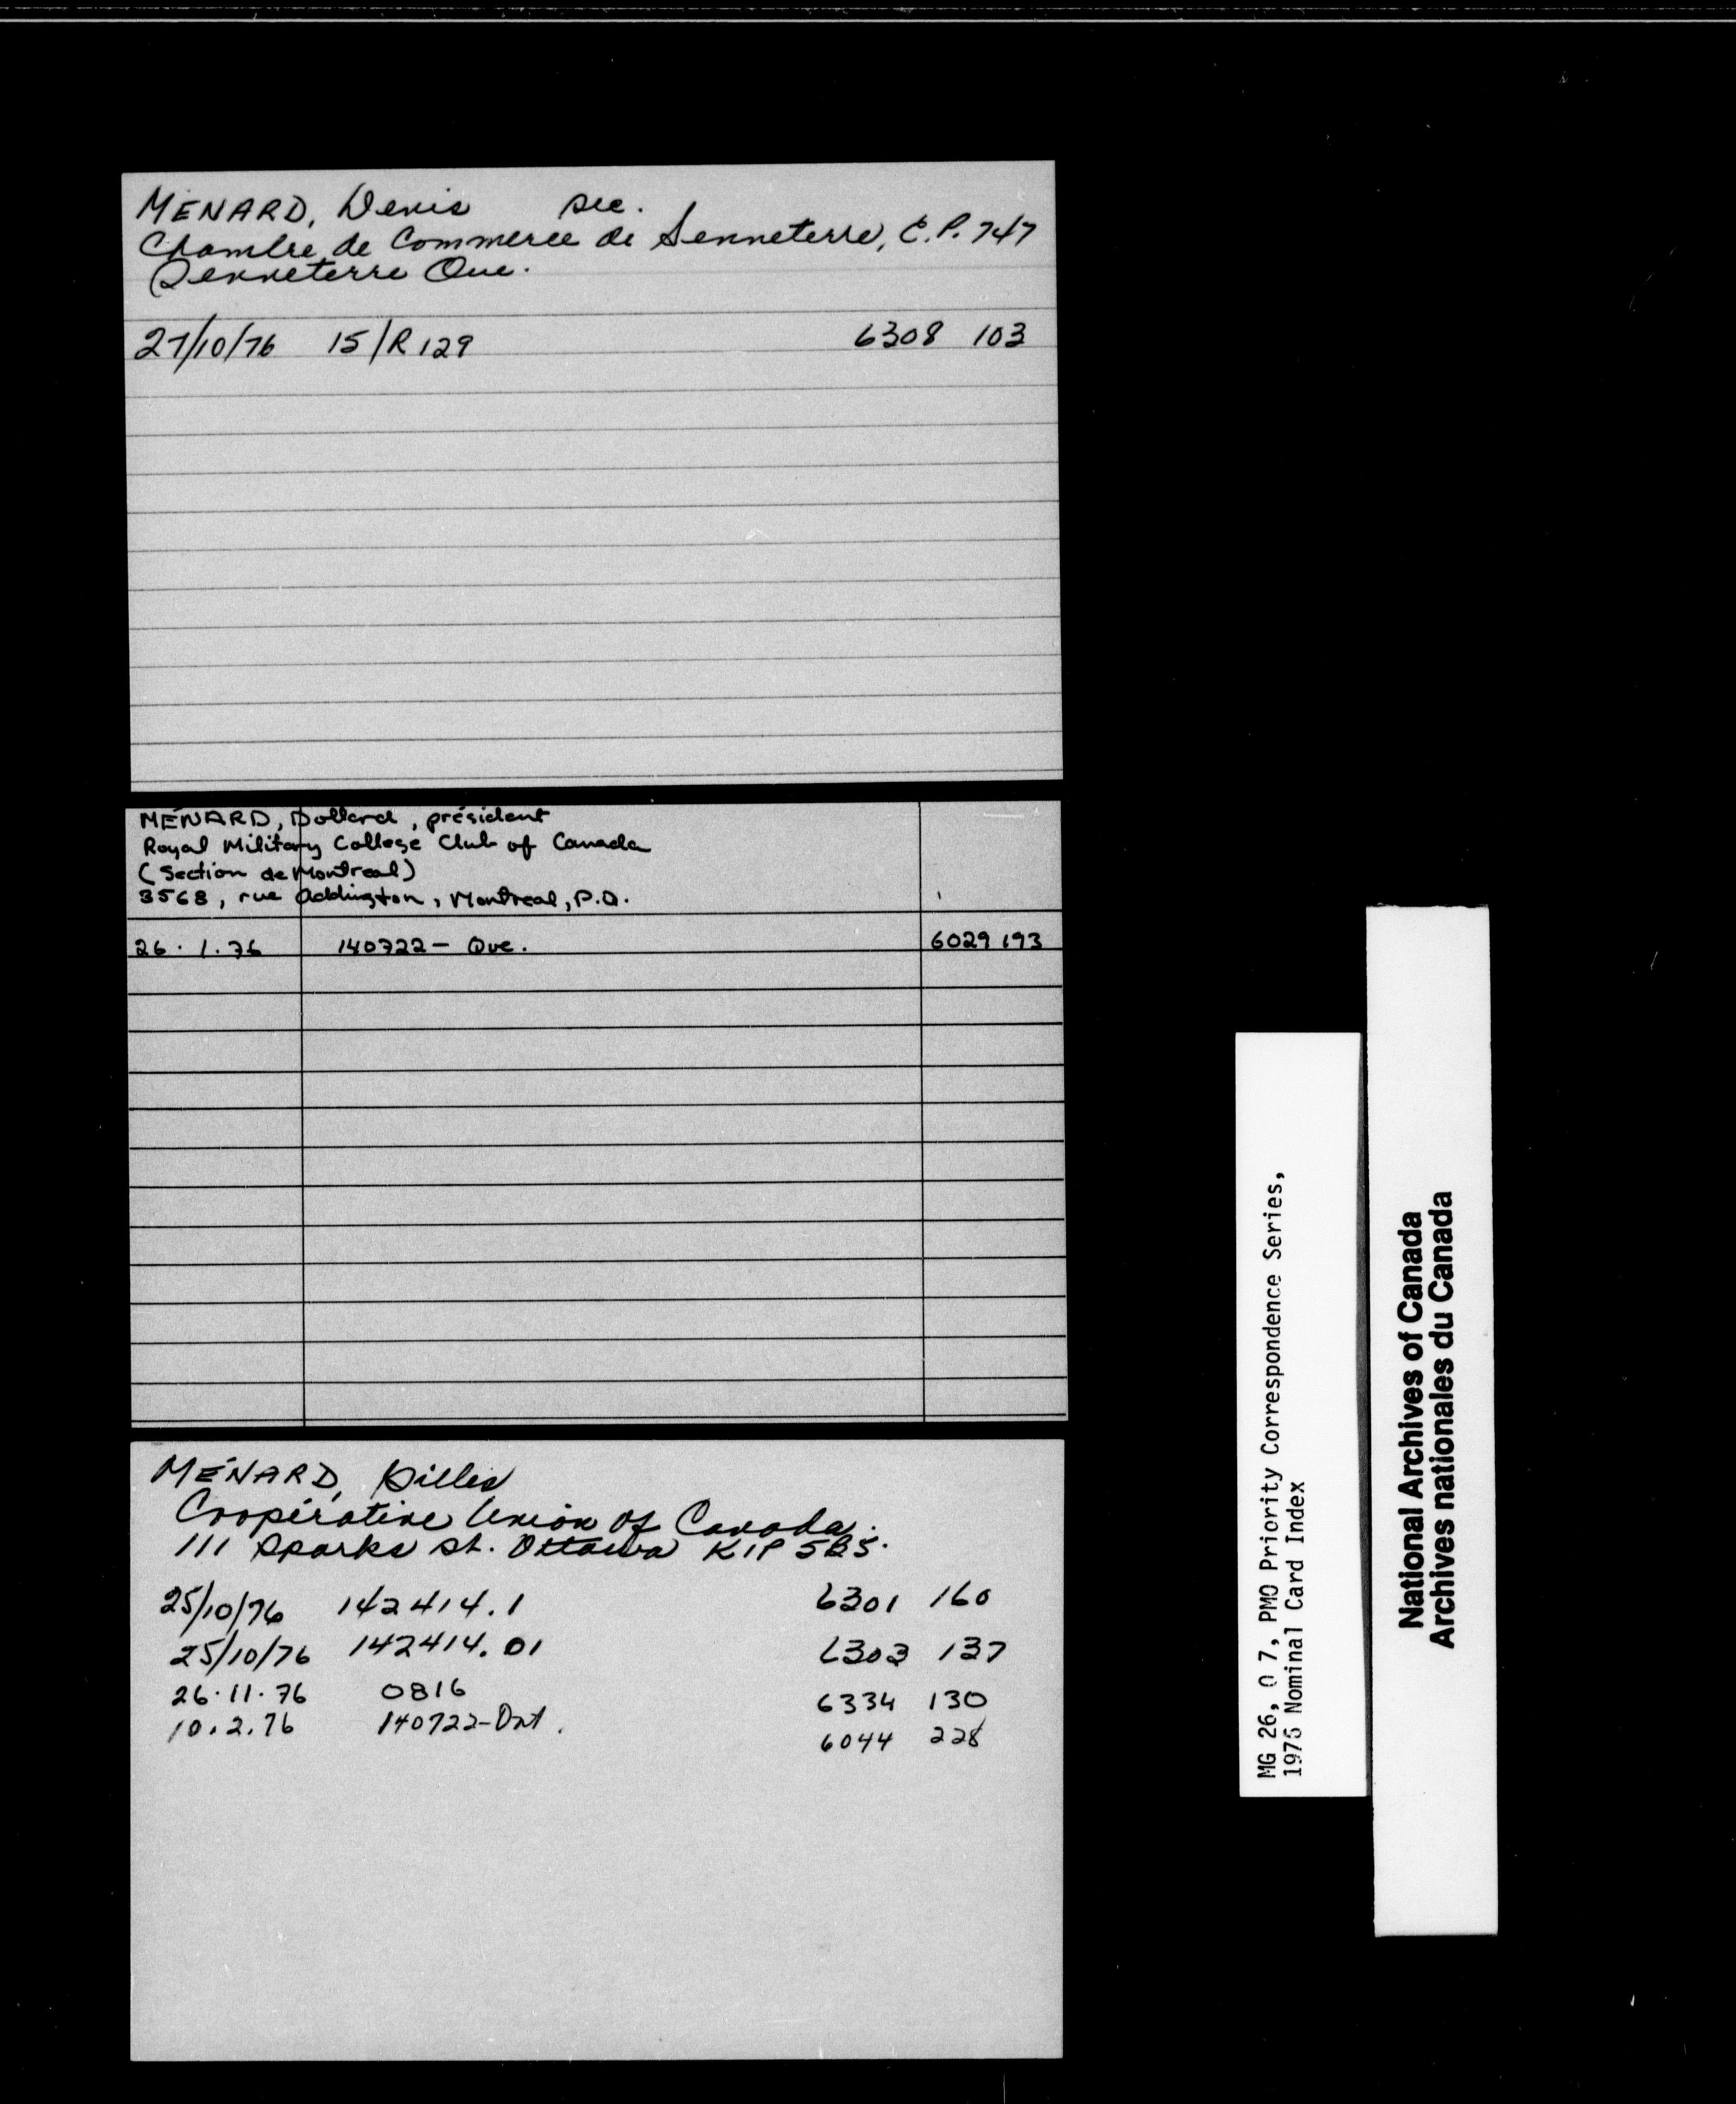 MENARD, Denis sec.
Chambre de Commerce de Senneterre, C.P. 747
Senneterre Que.
27/10/76 15/R129 6308 103
MÉNARD, Dollard, président
Royal Military College Club of Canada
(Section de Montreal)
3568, rue Addington, Montreal, P.Q.
26.1.76 140722- Que. 6029 193
MÉNARD, Gilles
Coopérative Union of Canada.
111 Sparks St. Ottawa K1P 5B5.
25/10/76 142414.1 6301 160
25/10/76 142414.01 6303 137
26.11.76 0816 6334 130
10.2.76 140722-Ont. 6044 228
MG 26, O 7, PMO Priority Correspondence Series,
1976 Nominal Card Index
National Archives of Canada
Archives nationales du Canada